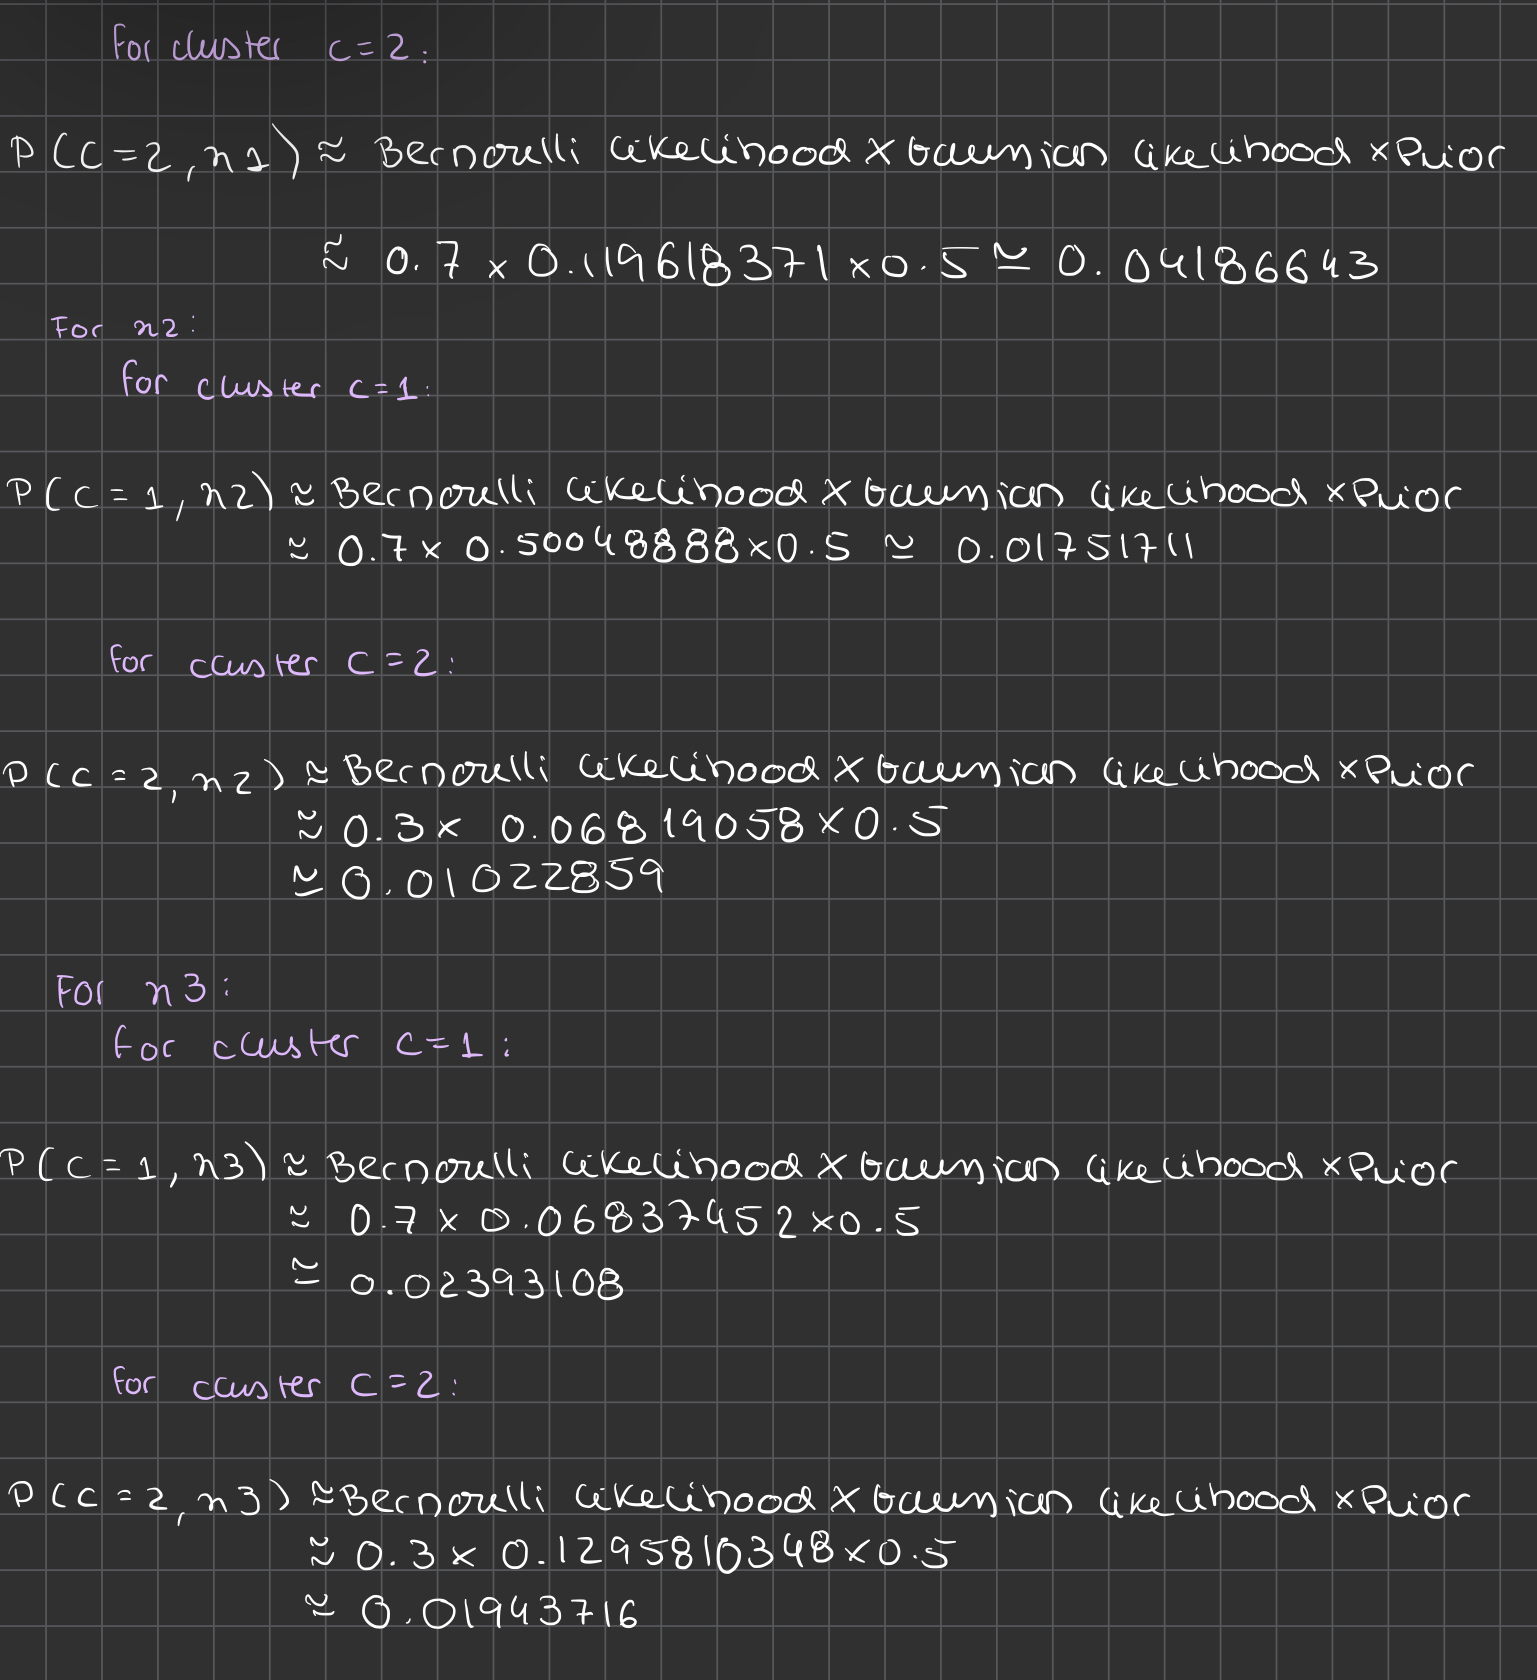 For cluster c=2:
P(C=2,x1) ≈ Bernoulli likelihood × Gaussian likelihood × Prior
≈ 0.7 × 0.119618371 × 0.5 ≃ 0.04186643
For x2:
For cluster c=1:
P(C=1,x2) ≈ Bernoulli likelihood × Gaussian likelihood × Prior
≈ 0.7 × 0.50048888 × 0.5 ≃ 0.01751711
For cluster C=2:
P(C=2,x2) ≈ Bernoulli likelihood × Gaussian likelihood × Prior
≈ 0.3 × 0.06819058 × 0.5
≃ 0.01022859
For x3:
For cluster C=1:
P(C=1,x3) ≈ Bernoulli likelihood × Gaussian likelihood × Prior
≈ 0.7 × 0.06837452 × 0.5
≃ 0.02393108
For cluster C=2:
P(C=2,x3) ≈ Bernoulli likelihood × Gaussian likelihood × Prior
≈ 0.3 × 0.1295810348 × 0.5
≃ 0.01943716